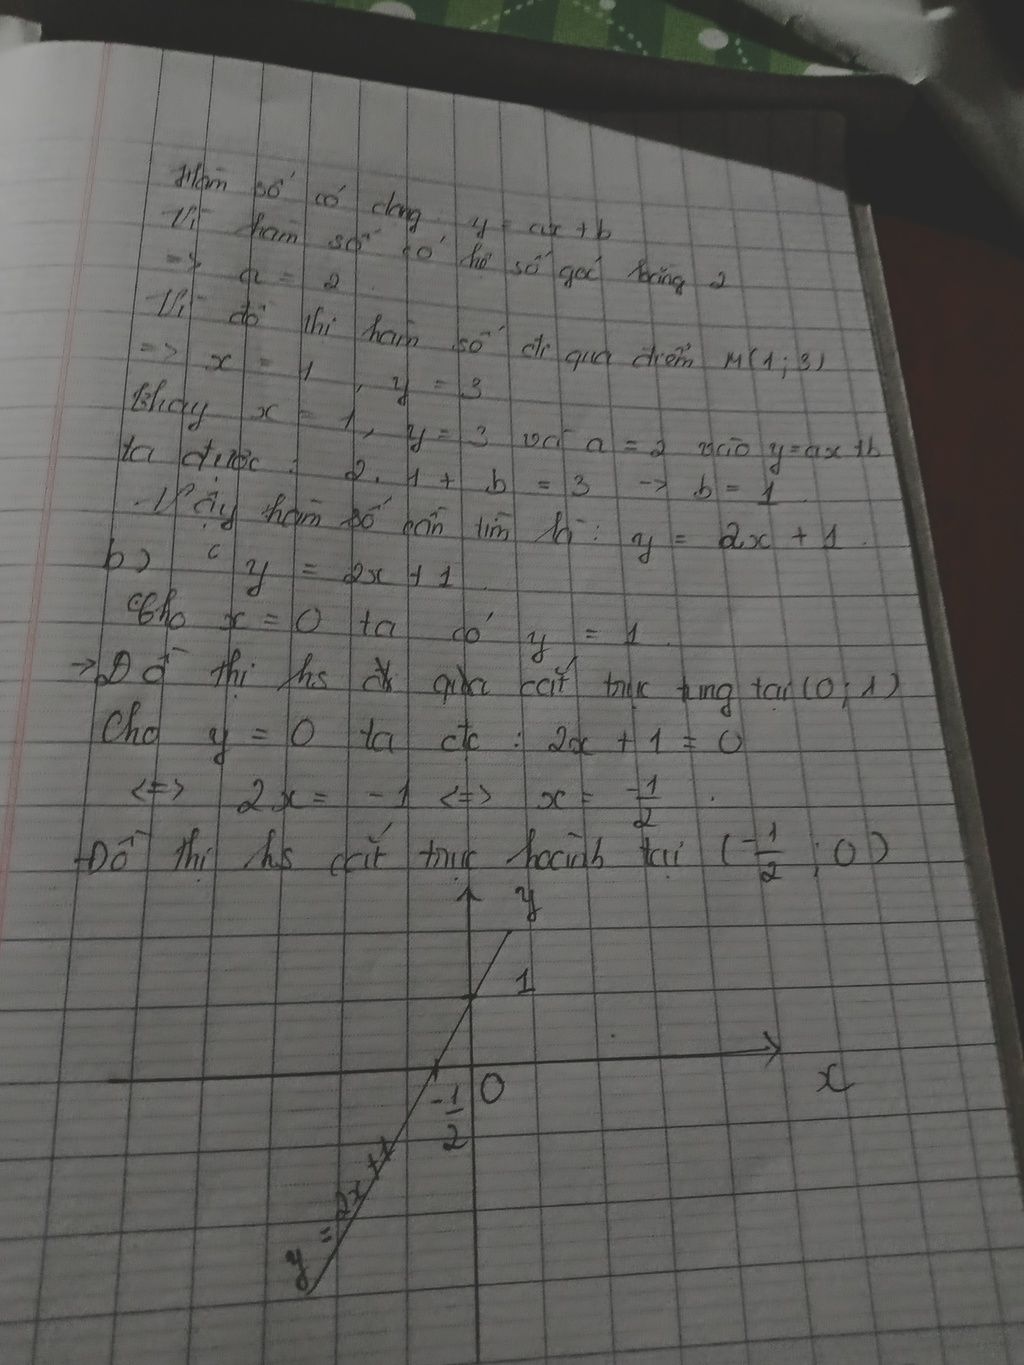 Hàm số có dạng y = ax + b
Vì hàm số có hệ số góc bằng 2
=> a = 2
Vì đồ thị hàm số đi qua điểm M(1; 3)
=> x = 1, y = 3
Thay x = 1, y = 3 và a = 2 vào y=ax+b
ta được: 2. 1 + b = 3 -> b = 1
Vậy hàm số cần tìm là: y = 2x + 1.
b) y = 2x + 1
Cho x = 0 ta có y = 1.
-> Đồ thị hs cắt trục tung tại (0; 1)
Cho y = 0 ta đc: 2x + 1 = 0
<=> 2x = -1 <=> x = -1/2.
Đồ thị hs cắt trục hoành tại (-1/2; 0)
y
1
x
0
-1/2
y = 2x + 1